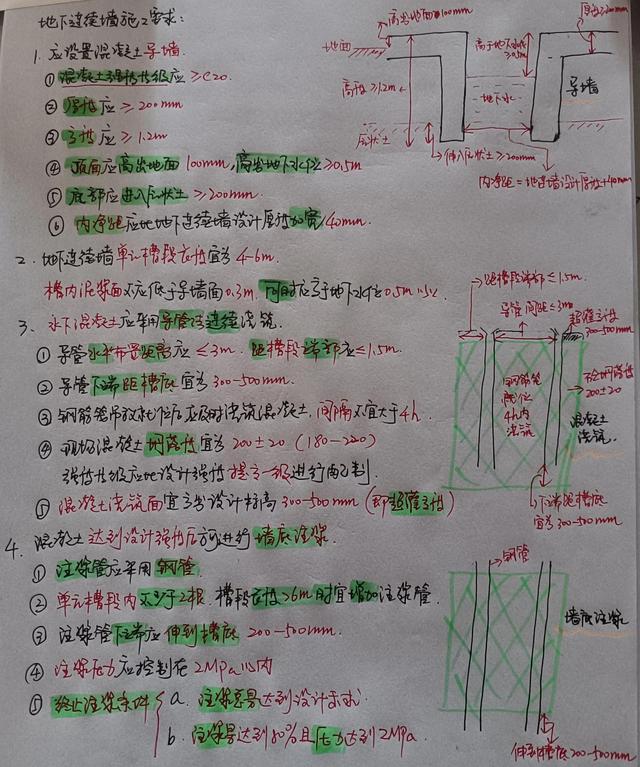 地下连续墙施工要求:
1. 应设置混凝土导墙
① 混凝土强度等级应≥C20.
② 厚度应≥200mm
③ 高度应≥1.2m
④ 顶面应高出地面100mm,高出地下水位≥0.5m
⑤ 底部应进入原状土≥200mm.
⑥ 内净距应比地下连续墙设计厚度加宽40mm.
2. 地下连续墙单元槽段长度宜为4-6m.
槽内泥浆面不应低于导墙面0.3m.同时应高于地下水位0.5m以上
3. 水下混凝土应采用导管法连续浇筑.
① 导管水平布置距离应≤3m.距槽段端部应≤1.5m.
② 导管下端距槽底宜为300-500mm.
③ 钢筋笼吊放就位后应及时浇筑混凝土,间隔不宜大于4h.
④ 现场混凝土坍落度宜为200±20(180-220)
强度等级应比设计强度提高一级进行配制.
⑤ 混凝土浇筑面宜高出设计标高300-500mm(即超灌高度)
4. 混凝土达到设计强度后方可进行墙底注浆
① 注浆管应采用钢管
② 单元槽段内不少于2根.槽段长度>6m时宜增加注浆管.
③ 注浆管下端应伸到槽底200-500mm.
④ 注浆压力应控制在2MPa以内
⑤ 终止注浆条件
a. 注浆总量达到设计要求.
b. 注浆量达到80%且压力达到2MPa.
高出地面≥100mm
厚度≥200mm
地面
高于地下水位≥0.5m
高度≥1.2m
地下水
导墙
原状土
伸入原状土≥200mm
内净距=地连墙设计厚度+40mm
距槽段端部≤1.5m.
导管间距≤3m
超灌高度
300-500mm
钢筋笼
就位
4h内
浇筑
坍落度
200±20
混凝土
浇筑.
下端距槽底
宜为300-500mm
钢管
墙底注浆
伸到槽底200-500mm